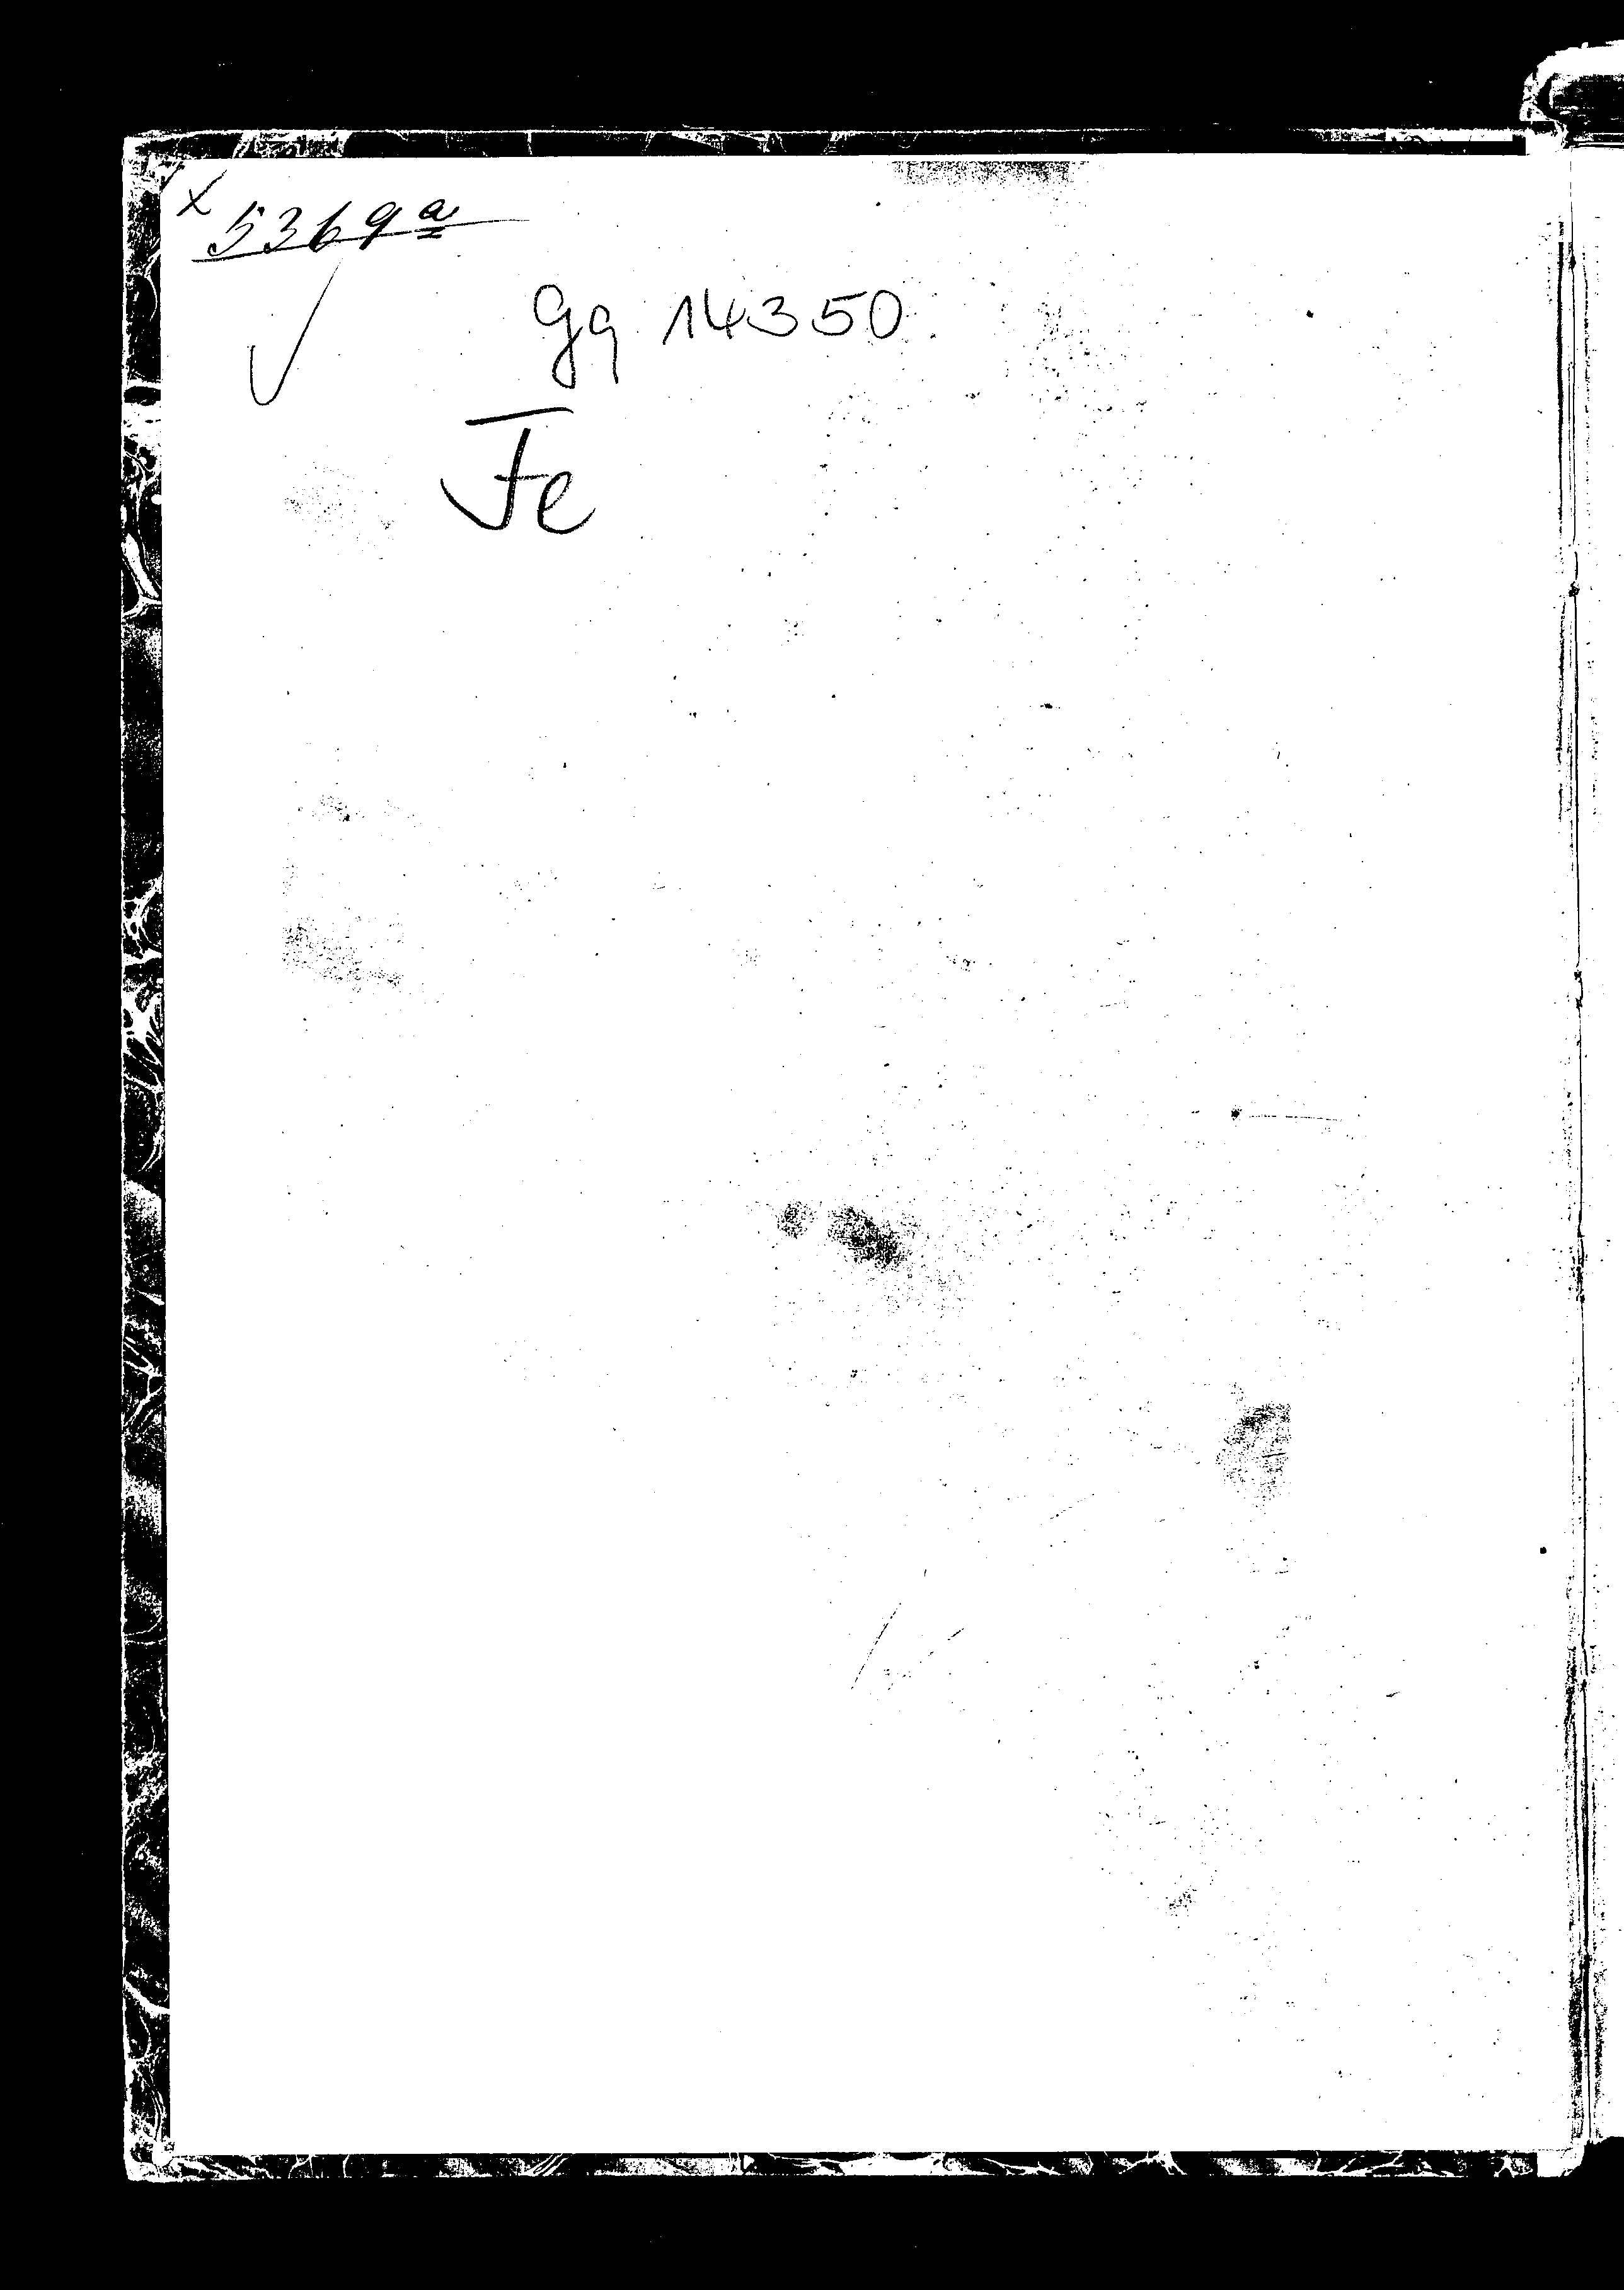 x 5369a
Gq 14350
Fe